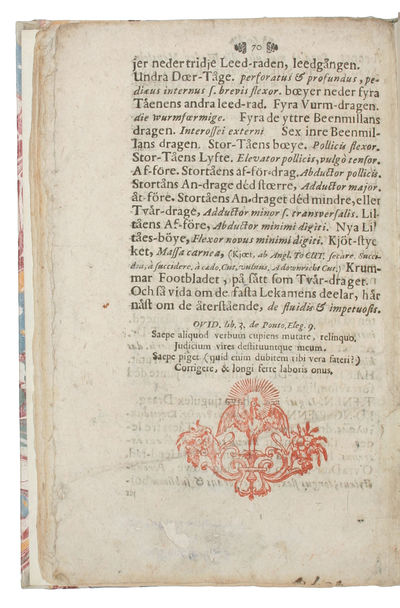 70
jer neder tridje Leed-raden, leedgången.
Undra Dœr-Tåge. perforatus & profundus, pe-
diæus internus s. brevis flexor. bœyer neder fyra
Tåenens andra leed-rad. Fyra Vurm-dragen.
die wurmfœrmige. Fyra de yttre Beenmillans
dragen. Interossei externi Sex inre Beenmil-
lans dragen. Stor-Tåens bœye. Pollicis flexor.
Stor-Tåens Lyfte. Elevator pollicis, vulgò tensor.
Af-före. Stortåens af-för-drag. Abductor pollicis.
Stortåns An-drage déd stœrre, Adductor major.
åt-före. Stortåens An-draget déd mindre, eller
Tvär-drage, Adductor minor s. transversalis. Lil-
tåens Af-före, Abductor minimi digiti. Nya Lil
tåes-böye, Flexor novus minimi digiti. Kjöt-styc
ket, Massa carnea, (Kjœt, ab Angl. To CUT. secare. Succi-
dia, à succidere, à cado, Cut, vulnus, A downricht Cut.) Krum-
mar Footbladet, på sått som Tvär-draget.
Och så vida om de fasta Lekamens deelar, hår
nåst om de återstående, de fluidis & impetuosis.
OVID. lib. 3. de Ponto, Eleg. 9.
Saepe aliquod verbum cupiens mutare, relinquo,
Judicium vires destituuntque meum.
Saepe piget (quid enim dubitem tibi vera fateri?)
Corrigere, & longi ferre laboris onus.